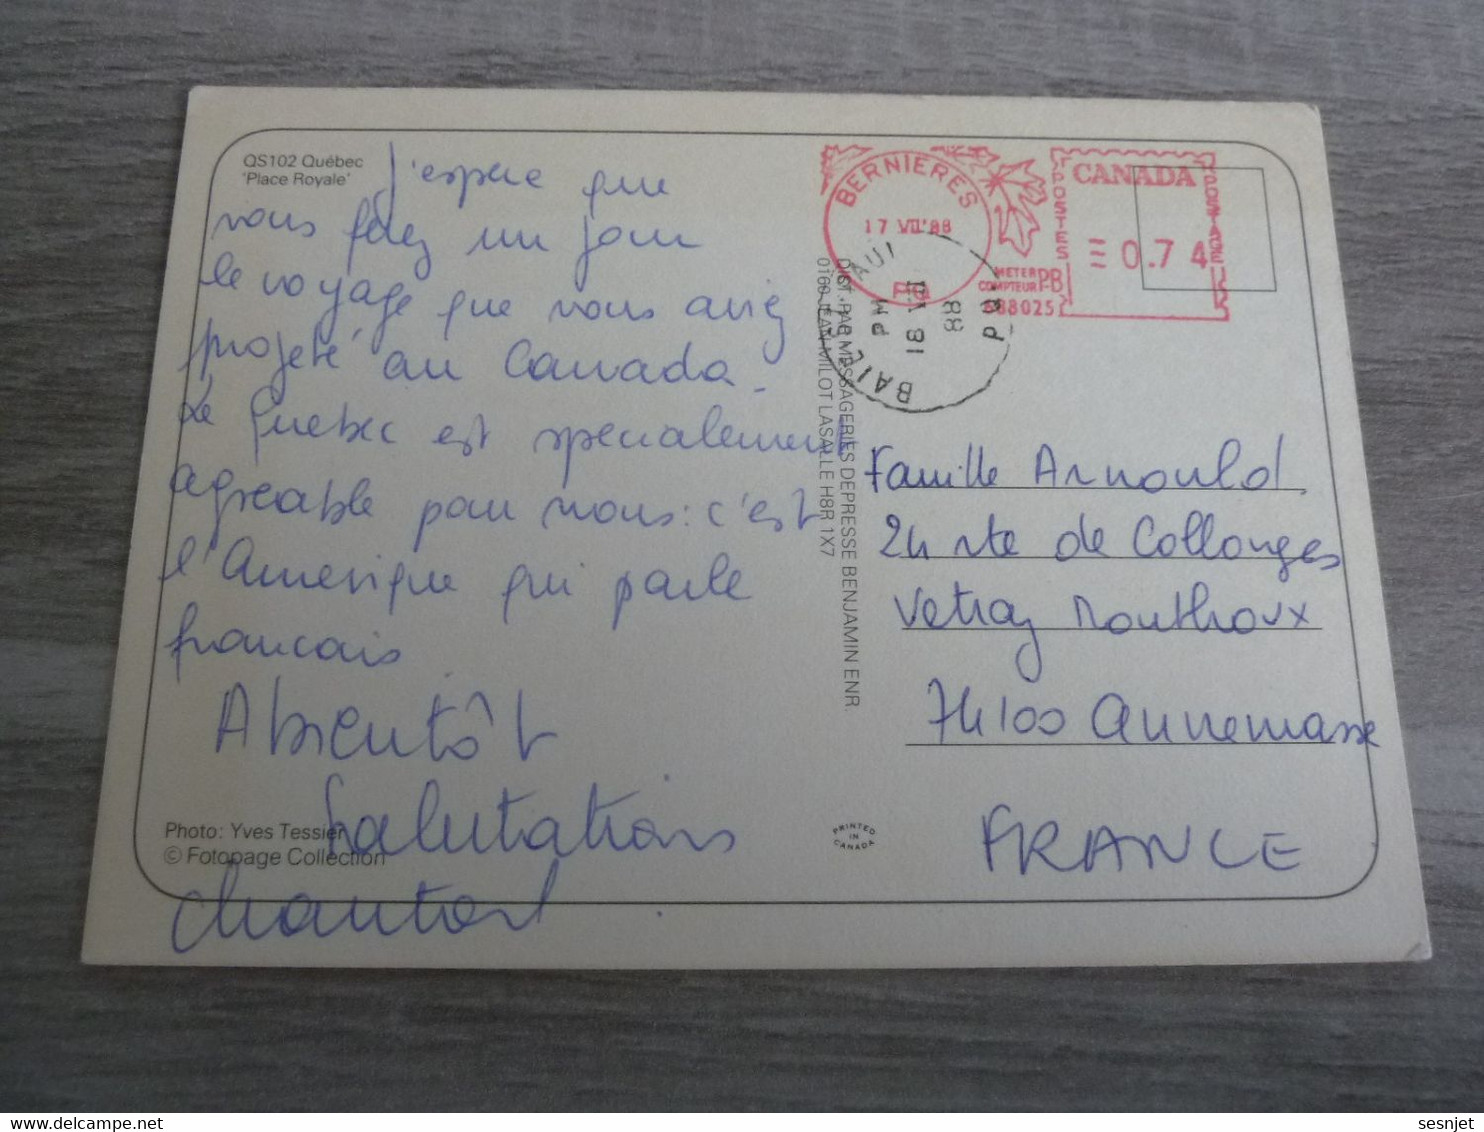 QS102 Québec
'Place Royale'
J'espère que
vous ferez un jour
le voyage que vous aviez
projeté au Canada.
Le Quebec est specialement
agreable pour nous: c'est
l'Amerique qui parle
francais
A bientôt
Salutations
Chantal
Photo: Yves Tessier
© Fotopage Collection
DIST. PAR MESSAGERIES DE PRESSE BENJAMIN ENR.
0160 JEAN MILOT LASALLE H8R 1X7
PRINTED
IN
CANADA
BERNIERES
17 VII '88
P.Q.
METER
COMPTEUR PB
688025
POSTES
CANADA
0.74
POSTAGE
BAIE ST PAUL
PM
18 VII
88
PQ
Famille Arnould
24 rte de Collonges
Vetraz Monthoux
74100 Annemasse
FRANCE
sesnjet